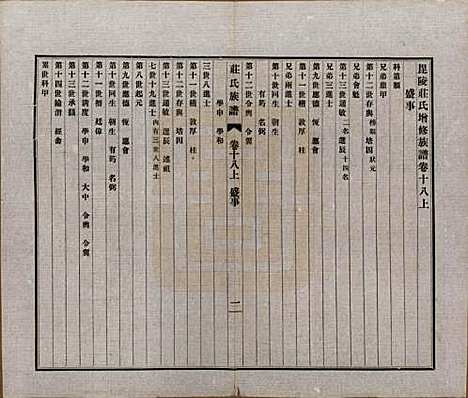 毘陵莊氏增修族譜卷十八上
盛事
科第類
兄弟鼎甲
第十二世存與 榜眼 培因 狀元
兄弟會魁
第十三世通敏 二名 選辰 十四名
兄弟三進士
第九世應德 恆 應會
第十一世楷 敦厚 柱
兄弟兩進士
第十世回生 朝生
有筠 名弼
第十二世令輿 令翼
莊氏族譜 卷十八上 盛事 二
學申 學和
三世八進士
第十一世楷 敦厚 柱
第十二世存與 培因
第十三世通敏 選辰 述祖
七世十九進士 內有三世八進士
第八世起元
第九世應德 恆 應會
第十世回生 朝生 有筠 名弼
第十一世搢 廷偉
第十二世清度 學申 學和 大中 令輿 令翼
第十三世承籛
第十四世綸渭 經畬
累世科甲